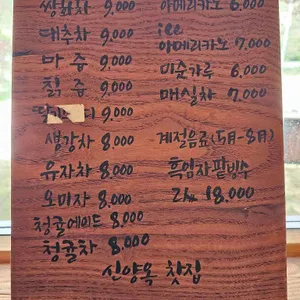 쌍화차 9,000
대추차 9,000
마 쥬 9,000
칡 즙 9,000
9,000
생강차 8,000
유자차 8,000
오미자 8,000
청귤에이드 8,000
청귤차 8,000
아메리카노 6,000
ice
아메리카노 7,000
미순가루 6,000
매실차 7,000
계절음료(5月-8月)
흑임자팥빙수
18,000
신양옥 찻집